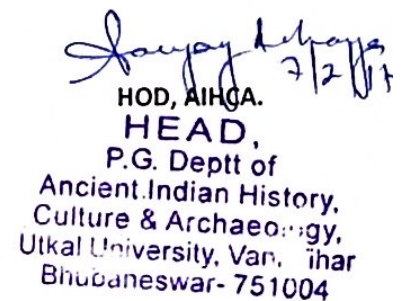 Sanjay Acharya
7/2/17
HOD, AIHCA.
HEAD,
P.G. Deptt of
Ancient Indian History,
Culture & Archaeology,
Utkal University, Vani Vihar
Bhubaneswar- 751004